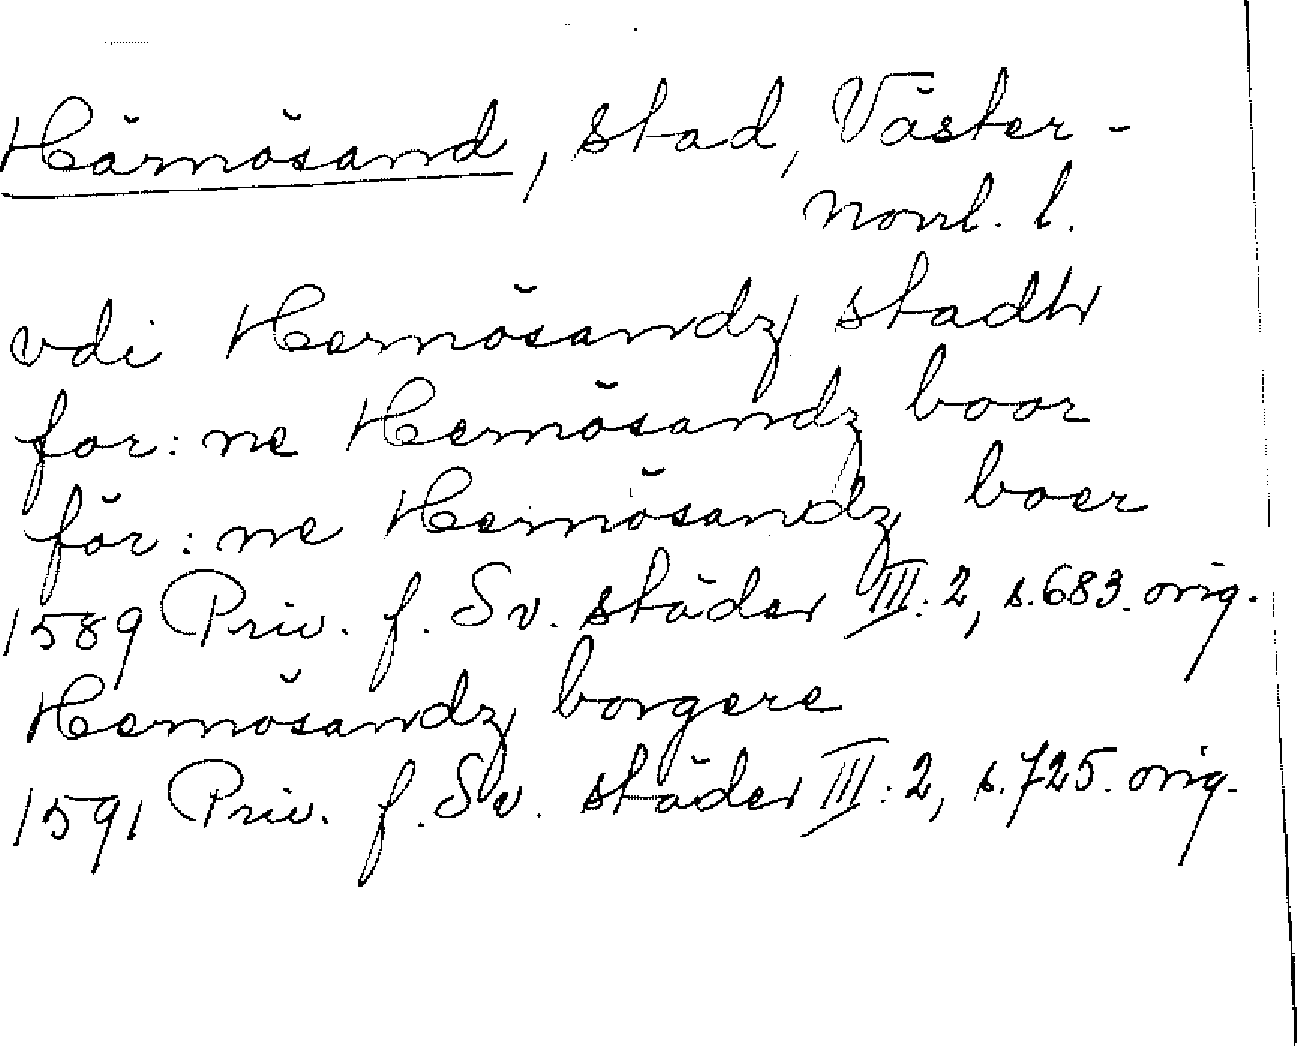 Härnösand, stad, Väster-
norrl. l.
vdi Hernösandz stadh
for:ne Hernösandz boar
för:ne Hernösandz boer
1589 Priv. f. Sv. städer III:2, s. 683. orig.
Hernösandz borgere
1591 Priv. f. Sv. städer III:2, s. 725. orig.